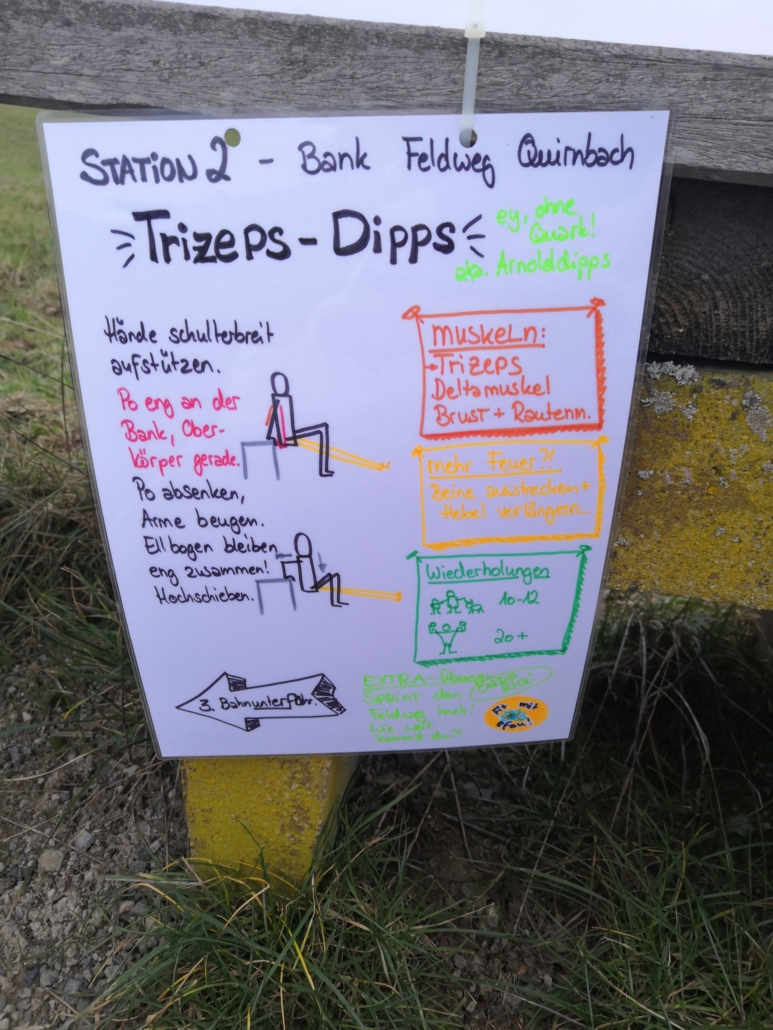 STATION 2 - Bank Feldweg Quirnbach
Trizeps - Dipps
ey, ohne
Quark!
aka. Arnolddipps
Hände schulterbreit
aufstützen.
Po eng an der
Bank, Ober-
körper gerade.
Po absenken,
Arme beugen.
Ellbogen bleiben
eng zusammen!
Hochschieben.
MUSKELN:
TRIZEPS
Deltamuskel
BRUST + Rautenm.
mehr Feuer?!
Beine ausstrecken +
Hebel verlängern...
Wiederholungen
10-12
20+
3. Bahnunterführ.
EXTRA-Übung
Sprint den
Feldweg hoch!
Wie weit
kommst du?!
Fit mit